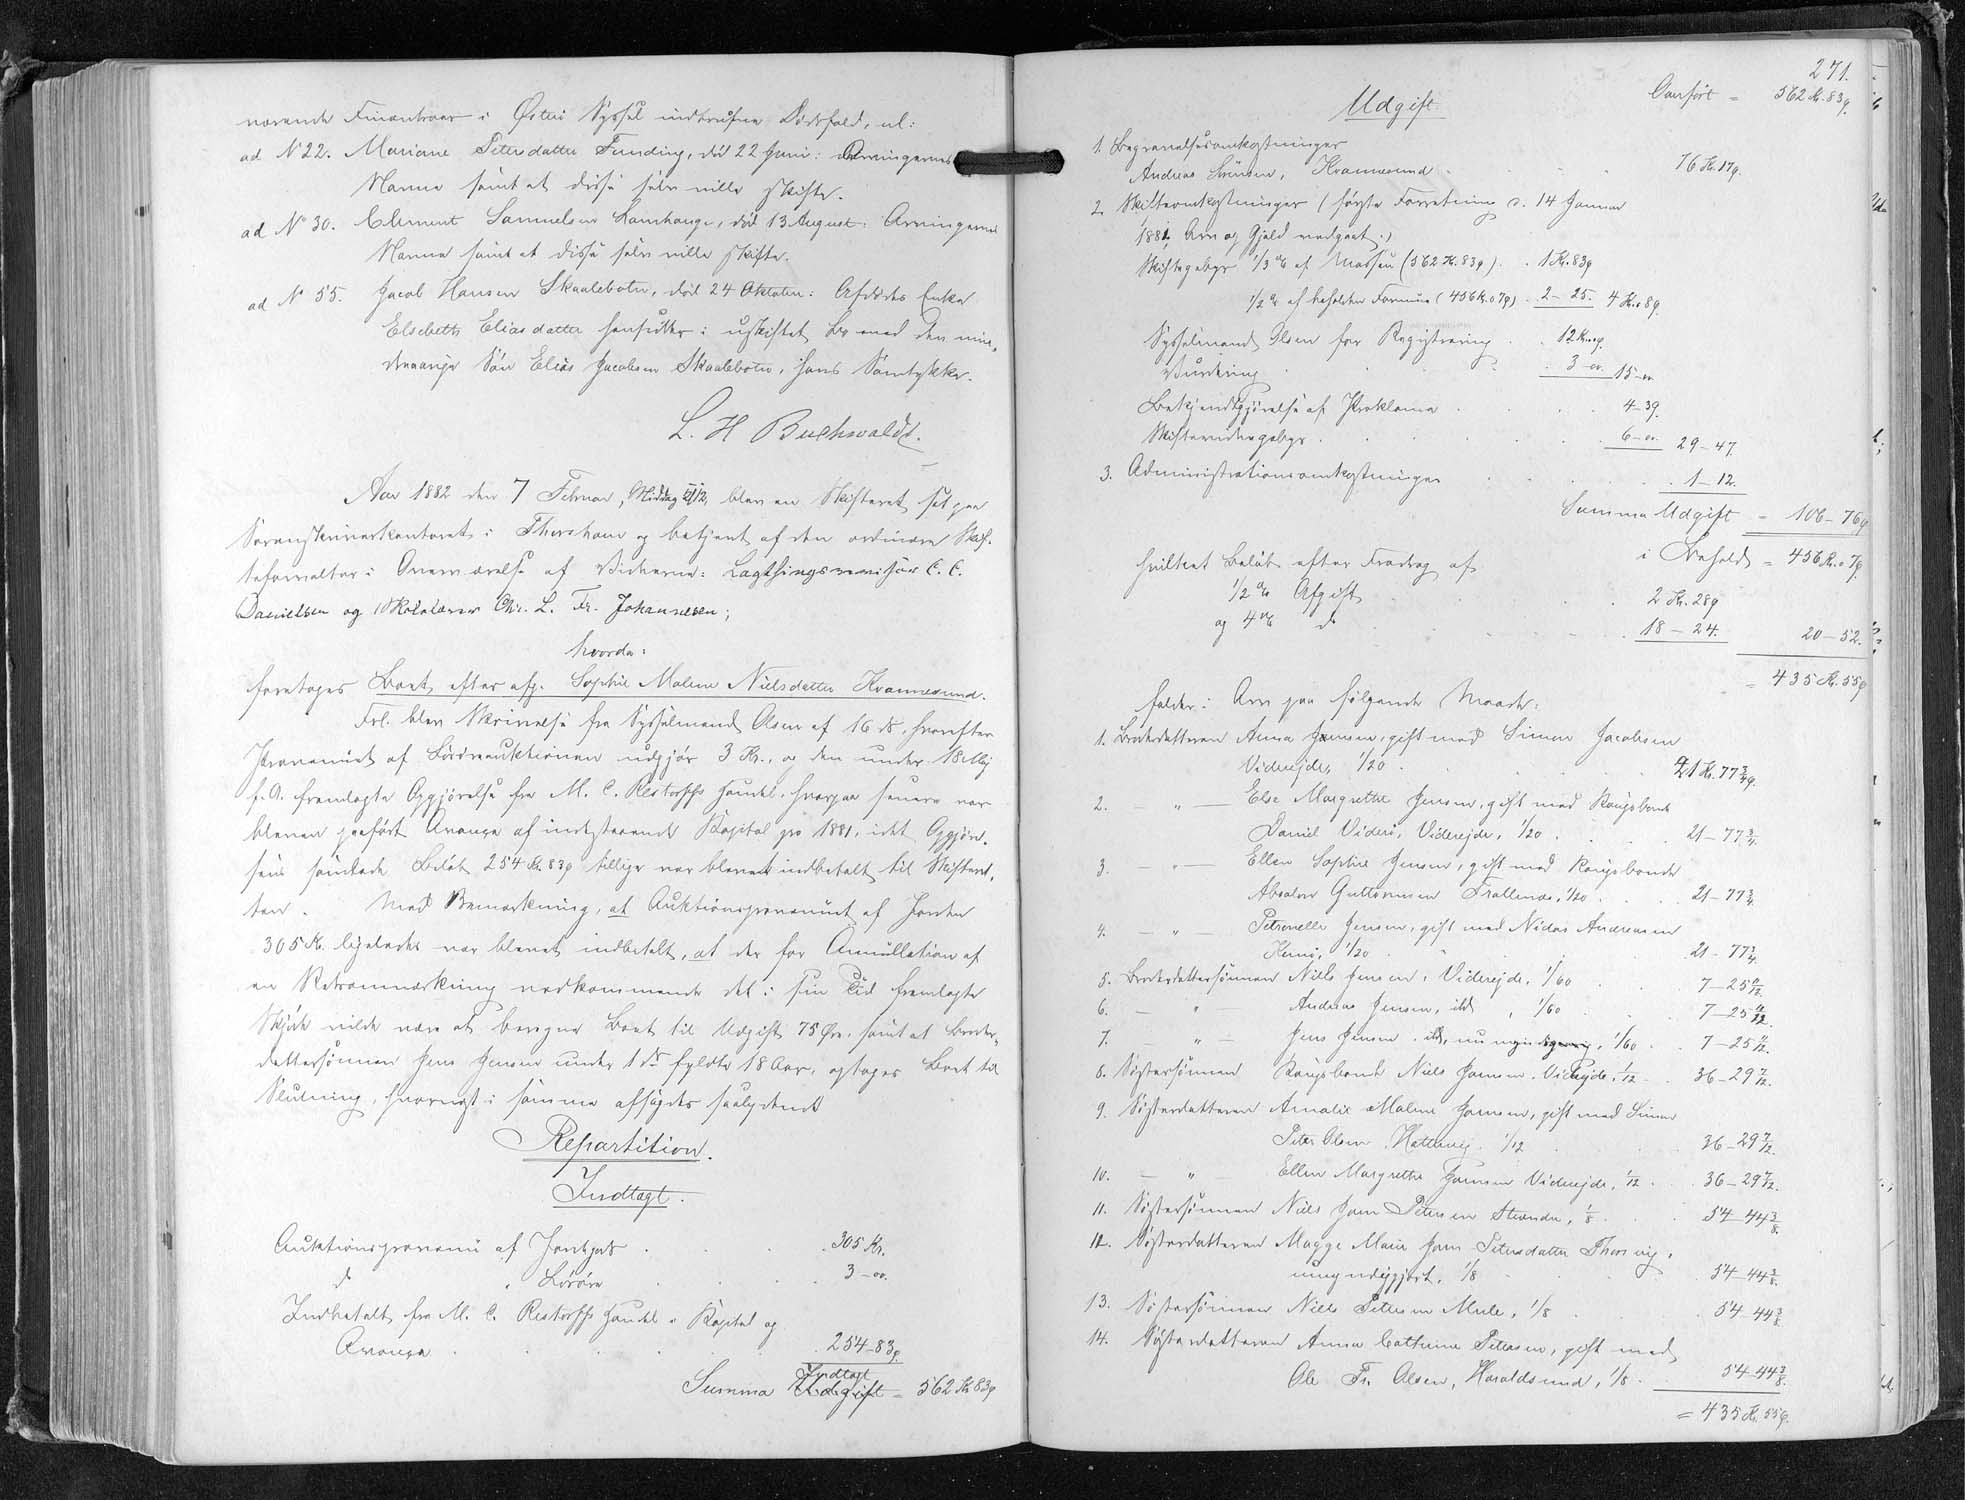 nærende Finantsaar i Østerø Syssel indtrufne Dødsfald, nl:
ad N 22. Mariane Petersdatter Funding, död 22 Juni: Arvingernes
Navne samt at disse selv ville skifte.
ad N° 30. Clement Samuelsen Lamhauge, död 13 August: Arvingernes
Navne samt at disse selv ville skifte.
ad N 55. Jacob Hansen Skaalebotn, död 24 Oktober: Afdødes Enke
Elsebeth Eliasdatter hensidder i uskiftet Bo med den min-
dreaarige Sön Elias Jacobsen Skaalebotn, hans Samtykke.
L. H Buchwaldt.
Aar 1882 den 7 Februar, Middag 12, blev en Skifteret sat paa
Sorenskriverkontoret i Thorshavn og betjent af den ordinære Skif-
teforvalter i Overværelse af Vidnerne: Lagthingsrevisor C. C.
Danielsen og Skolelærer Chr. L. Fr. Johannesen;
hvorda:
foretoges Boet efter afg. Sophie Malene Nielsdatter Kvannesund.
Frl. blev Skrivelse fra Sysselmand Olsen af 16 ds, hvorefter
Provenuet af Løsøreauktionen udgjör 3 Kr., og den under 18 Maj
f. A. fremlagte Opgjørelse fra M. C. Restorffs Handel, hvorpaa senere var
bleven paaført Avance af indestaaende Kapital pro 1881, idet Opgjørel-
sens samlede Beløb 254 Kr. 83 ø tillige var blevet indbetalt til Skifteret-
ten. Med Bemærkning, at Auktionsprovenuet af Jorden
305 Kr. ligeledes var blevet indbetalt, at der for Annullation af
en Retsanmærkning vedkommende det i sin Tid fremlagte
Skjøde vilde være at beregne Boet til Udgift 75 Øre, samt at Broder-
dattersönnen Jens Jensen under 1 ds fyldte 18 Aar, optoges Boet til
Slutning, hvornæst i samme afsagdes saalydende
Repartition.
Indtægt.
Auktionsprovenu af Jordgods . . . 305 Kr.
do " Løsøre . . . 3 - "
Indbetalt fra M. C. Restorffs Handel i Kapital og
Avance . . . 254-83 ø
Summa Indtægt = 562 Kr 83 ø
271.
Udgift
Overført = 562 Kr. 83 ø.
1. Begravelsesomkostninger
Andreas Sörensen, Kvannesund . . . 76 Kr. 17 ø.
2. Skifteomkostninger (første Forretning d. 14 Januar
1881, Arv og Gjæld vedgaaet.)
Skiftegebyr 1/3 % af Massen (562 Kr. 83 ø) . . 1 Kr. 83 ø
1/2 % af beholden Formue (456 Kr. 07 ø) . . 2 - 25. 4 Kr. 08 ø.
Sysselmand Olsen for Registrering . . 12 Kr. " ø.
Vurdering . . . 3 - " 15 - "
Bekjendtgjørelse af Proklama . . . 4 - 39.
Skifteretsgebyr . . . 6 - " 29 - 47.
3. Administrationsomkostninger . . . 1 - 12.
Summa Udgift = 106 - 76 ø
i Behold = 456 Kr. 07 ø.
hvilket Beløb efter Fradrag af
1/2 % Afgift . . . 2 Kr. 28 ø
og 4 % do . . . 18 - 24. 20 - 52.
= 435 Kr. 55 ø
falder i Arv paa følgende Maade:
1. Broderdatteren Anna Jensen, gift med Simon Jacobsen
Viderejde, 1/20 . . . 21 Kr. 77 3/4 ø.
2. — " — Else Margrethe Jensen, gift med Kongsbonde
Daniel Viderö, Viderejde, 1/20 . . . 21 - 77 3/4.
3. — " — Ellen Sophie Jensen, gift med Kongsbonde
Absalon Guttormsen Trøllenæs, 1/20 . . . 21 - 77 3/4.
4. — " — Petronelle Jensen, gift med Andreasen
Kunö, 1/20 . . . 21 - 77 3/4.
5. Broderdattersönnen Niels Jensen, Viderejde, 1/60 . . 7 - 25 11/12.
6. — " — Andreas Jensen, ibd, 1/60 . . 7 - 25 11/12.
7. — " — Jens Jensen ibd, nu myndig, 1/60 . . 7 - 25 11/12.
8. Søstersönnen Kongsbonde Niels Hansen, Viderejde, 1/12 . . 36 - 29 7/12.
9. Søsterdatteren Amalie Malene Hansen, gift med Simon
Peter Olsen Hattevig 1/12 . . 36 - 29 7/12.
10. — " — Ellen Margrethe Hansen Viderejde, 1/12 . . 36 - 29 7/12.
11. Søstersönnen Niels Petersen Strende, 1/8 . . 54 - 44 3/8.
12. Søsterdatteren Magge Marie Petersdatter Thorsvig,
umyndiggjort, 1/8 . . 54 - 44 3/8.
13. Søstersönnen Niels Petersen Mule, 1/8 . . 54 - 44 3/8.
14. Søsterdatteren Anna Cathrine Petersen, gift med
Ole Fr. Olsen, Haraldssund, 1/8 . . 54 - 44 3/8.
= 435 Kr. 55 ø.